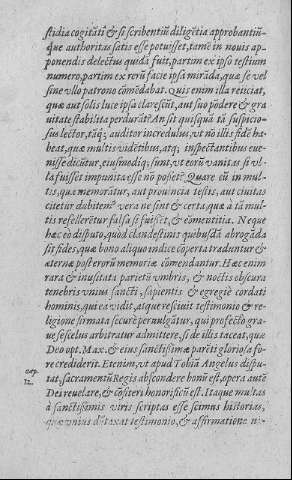 stidia cogitāti & si scribentiū diligētia approbantiū-
que authoritas satis esse potuisset, tamē in nouis ap-
ponendis delectus quidā fuit, partim ex ipso testium
numero, partim ex rerū facie ipsa mirāda, quæ se vel
sine vllo patrono cōmēdabat. Quis enim illa reiiciat,
quæ aut solis luce ipsa clarescūt, aut suo pōdere & gra
uitate stabilita perdurāt? An sit quisquā tā suspicio-
sus lector, tāq; auditor incredulus, vt nō illis fidē ha-
beat, quæ multis vidētibus, atq; inspectantibus eue-
nisse dicūtur, eiusmodiq; sunt, vt eorū vanitas si vl-
la fuisset impunita esse nō posset? Quare cū in mul-
tis, quæ memorātur, aut prouincia testis, aut ciuitas
citetur dubitem? vera ne sint & certa, quæ a tā mul-
tis refellerētur falsa si fuissēt, & cōmentitia. Neque
hæc eo disputo, quod clandestinis quibusdā abrogāda
sit fides, quæ bono aliquo indice cōperta traduntur &
æternæ posterorū memoriæ cōmendantur. Hæc enim
rara & inusitata parietū vmbris, & noctis obscura
tenebris vnius sancti, sapientis & egregiè cordati
hominis, qui ea vidit, atque resciuit testimonio & re-
ligione firmata securè peruulgātur, qui profectò gra-
ue se scelus arbitratur admittere, si de illis taceat, quæ
Deo opt. Max. & eius sanctissimæ parēti gloriosa fo-
re crediderit. Etenim, vt apud Tobiā Angelus dispu-
cap. 12.
tat, sacramentū Regis abscondere bonū est, opera autē
Dei reuelare, & cōfiteri honorificū est. Itaque multas
à sanctissimis viris scriptas esse scimus historias,
quæ vnius dūtaxat testimonio, & affirmatione